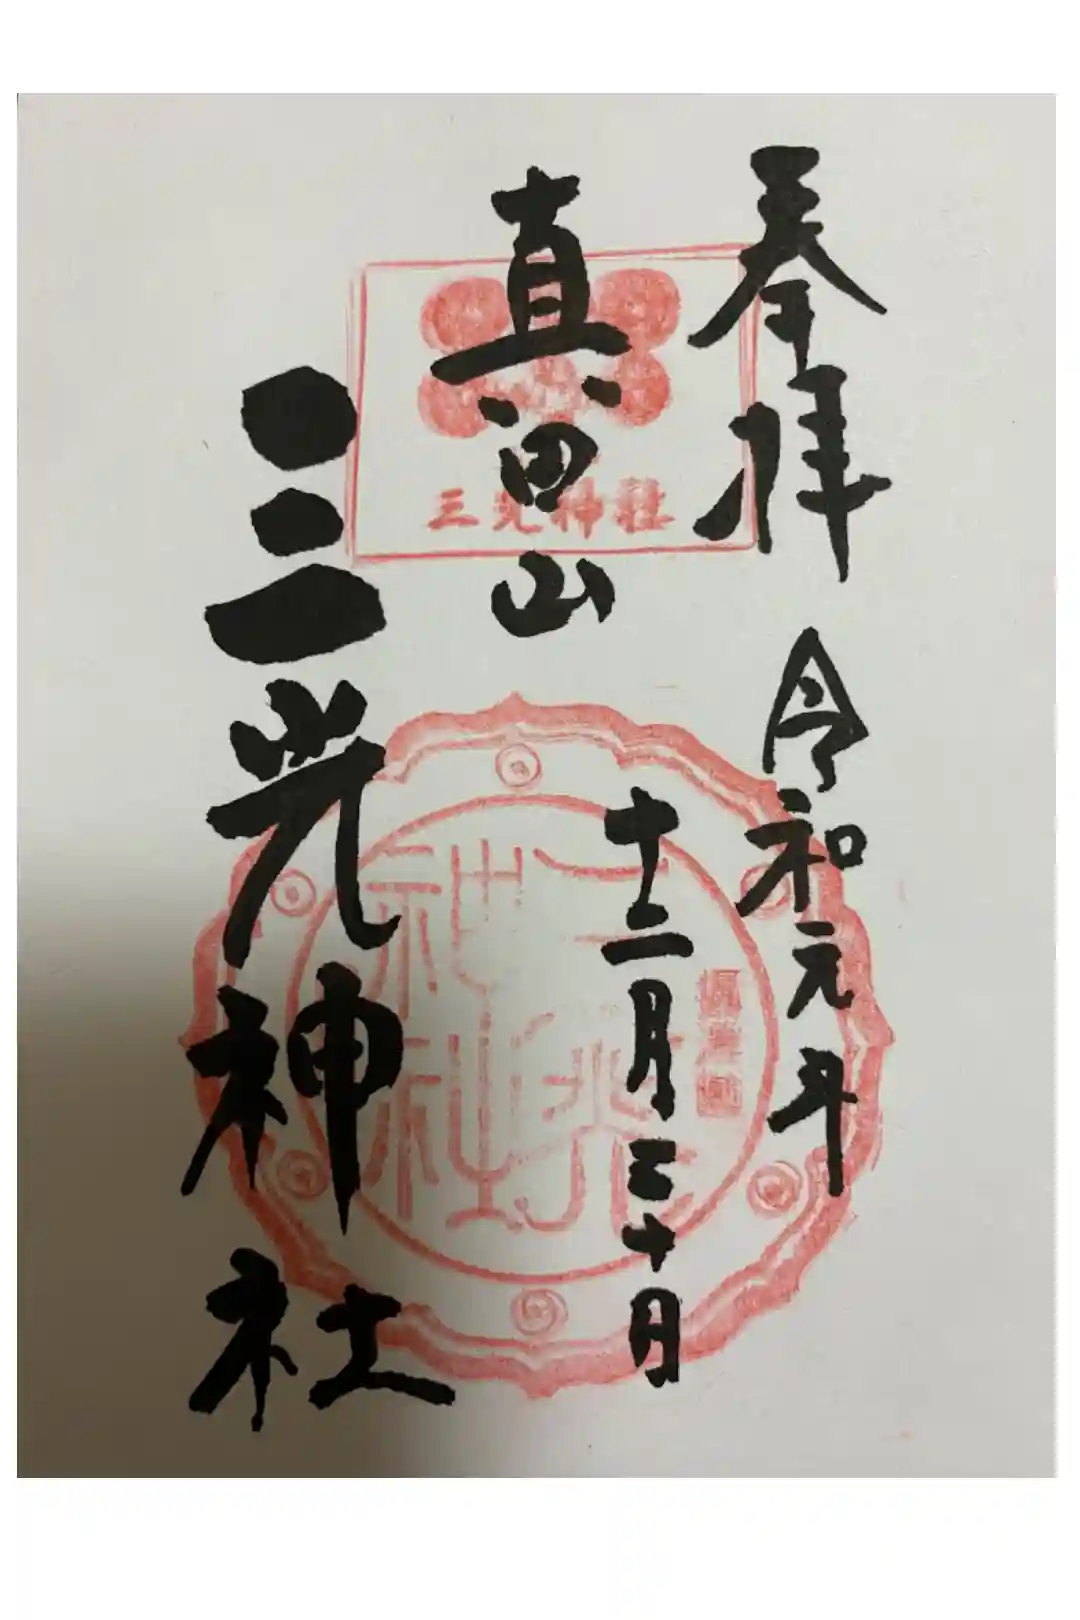 奉拝 令和元年
十二月三十日
真田山
三光神社
三光神社
三光神社